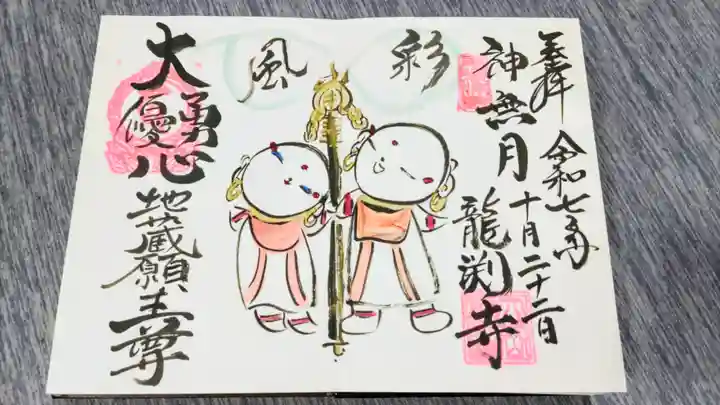 奉拝 令和七年
神無月 十月二十二日
龍渕寺
彩風
大勇心
優
地蔵願王尊